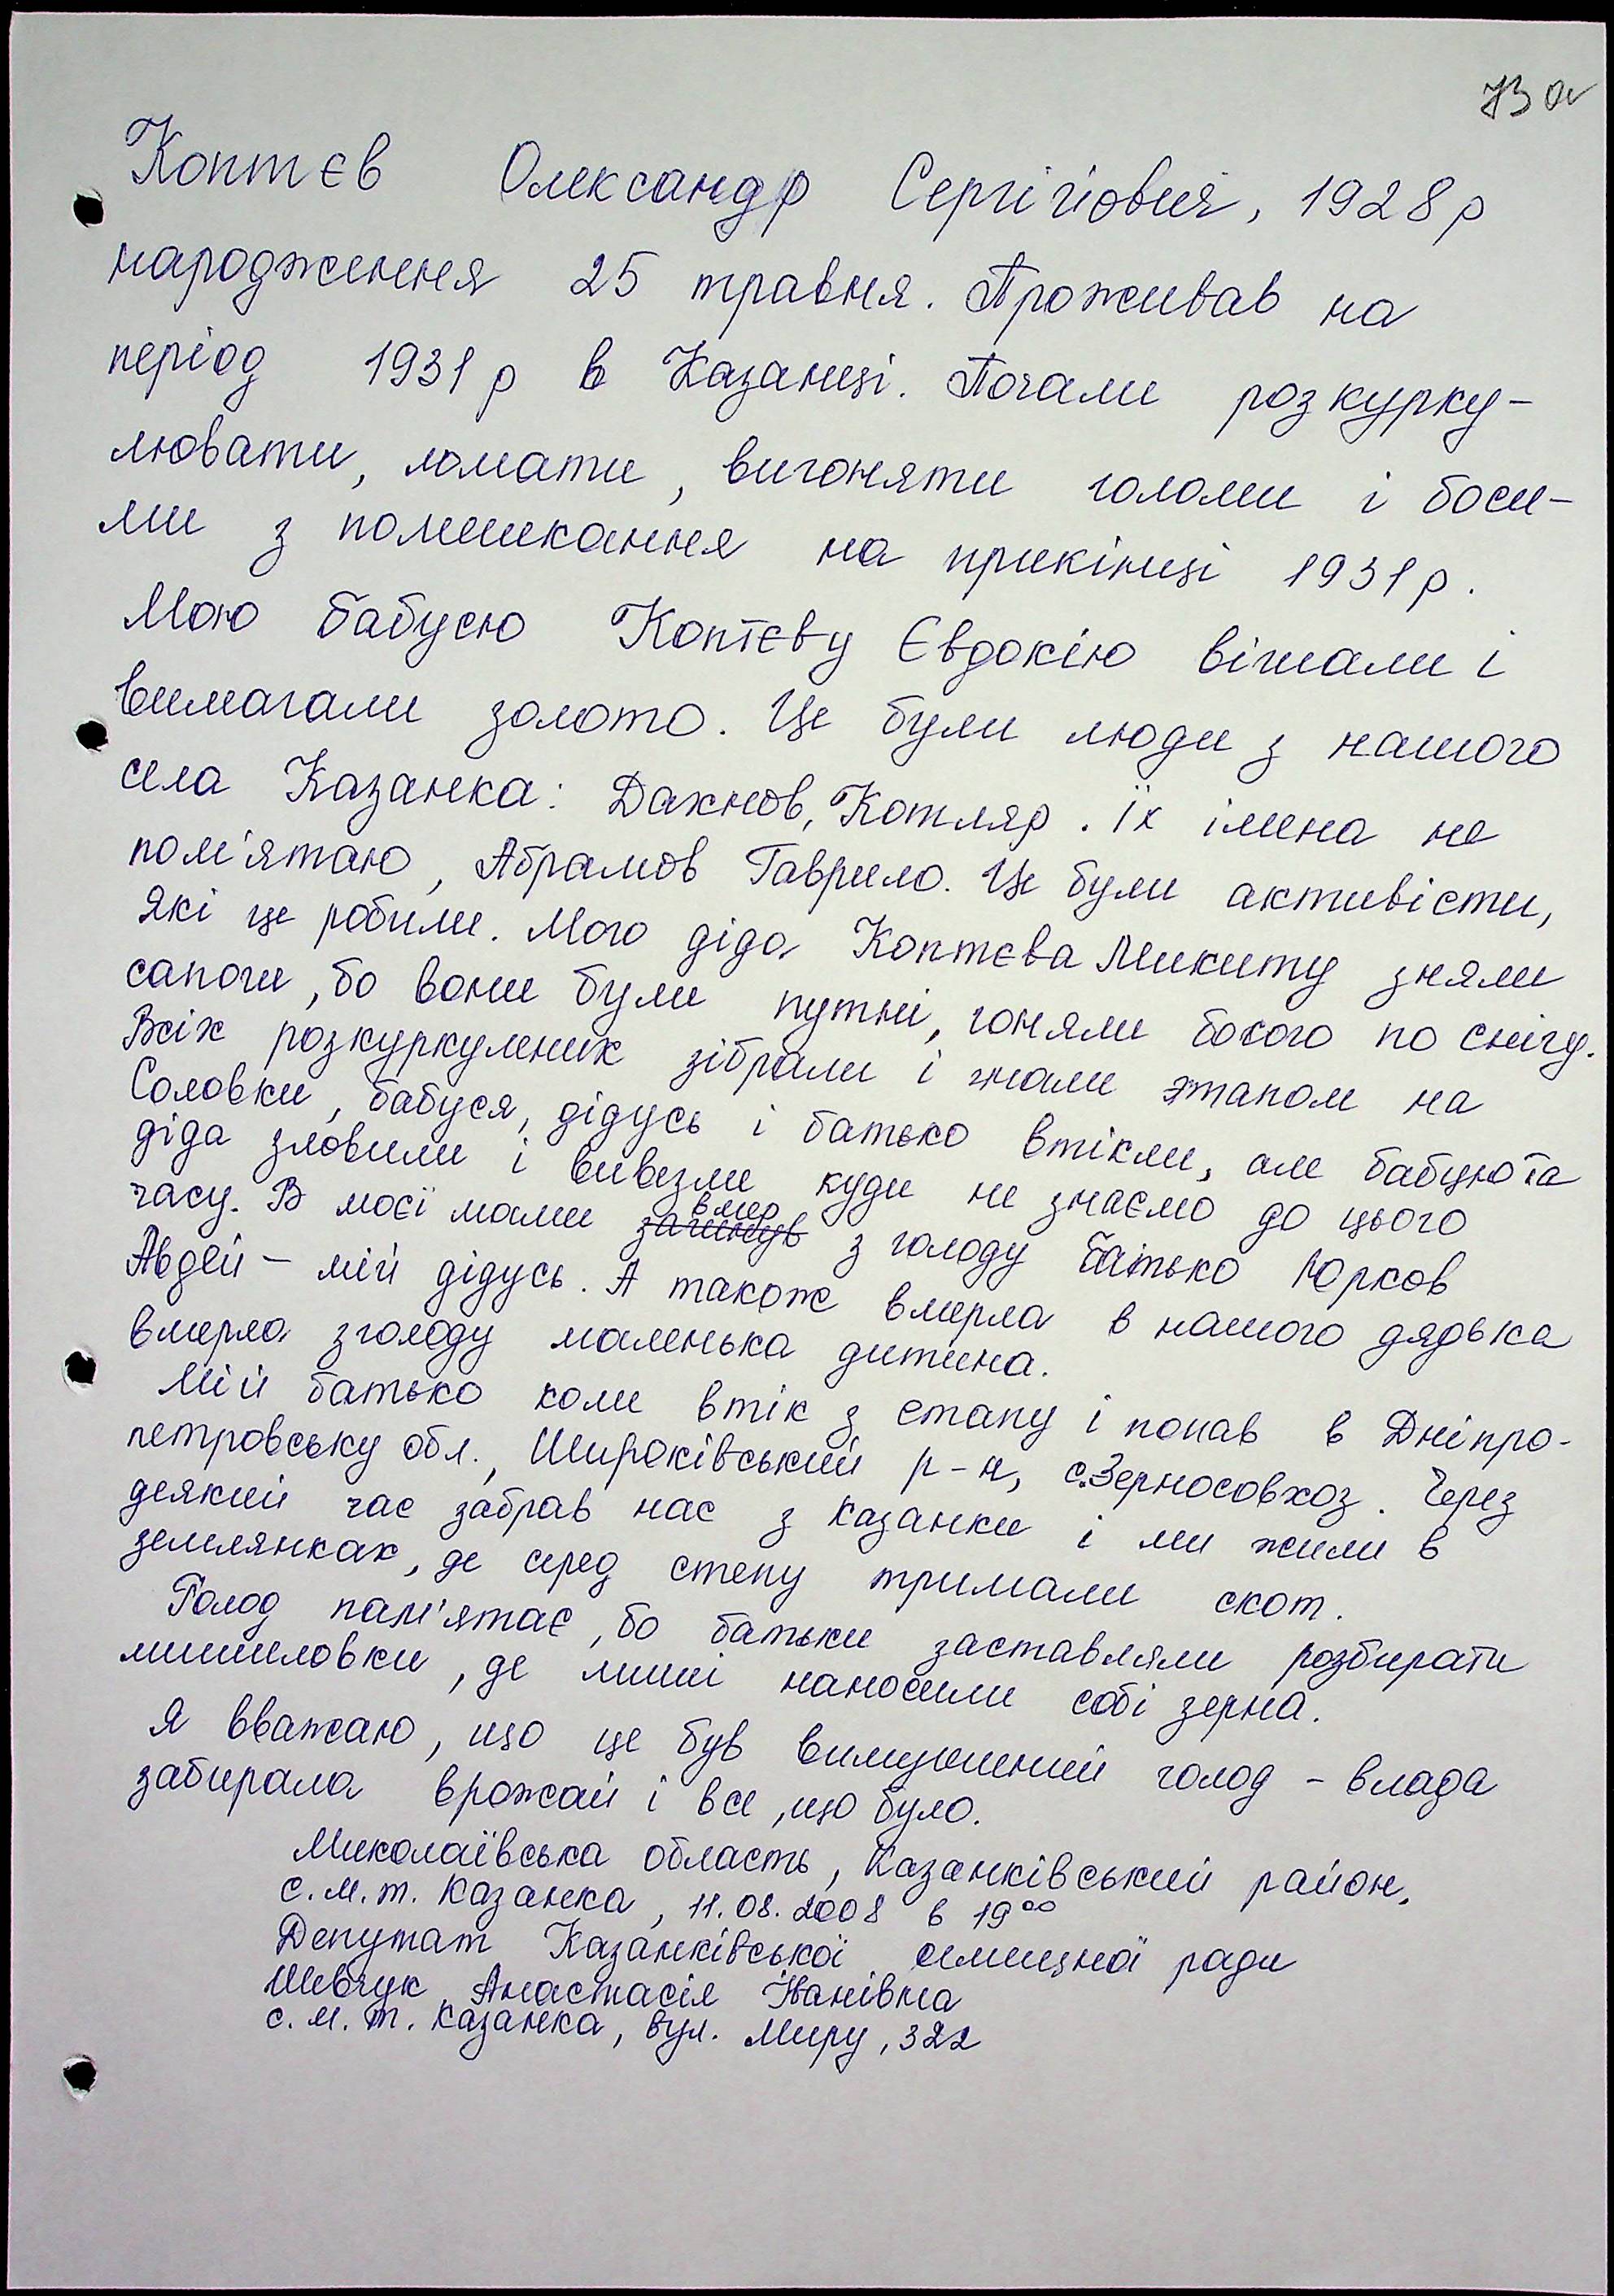 73 а
Коптєв Олександр Сергійович, 1928 р
народження 25 травня. Проживав на
період 1931 р в Казанці. Почали розкурку-
лювати, ломати, вигоняти голоми і боси-
ми з помешкання на прикінці 1931 р.
Мою бабусю Коптєву Євдокію вішали і
вимагали золото. Це були люди з нашого
села Казанка: Дахнов, Котляр. Їх імена не
пом'ятаю, Абрамов Гаврило. Це були активісти,
які це робили. Мого діда Коптєва Микиту зняли
сапоги, бо вони були путні, гоняли босого по снігу.
Всіх розкуркулених зібрали і гнали этапом на
Соловки, бабуся, дідусь і батько втікли, але бабцю та
діда зловили і вивезли куди не знаємо до цього
часу. В моєї мами загинув вмер з голоду батько Юрков
Авдей – мій дідусь. А також вмерла в нашого дядька
вмерла з голоду маленька дитина.
Мій батько коли втік з етапу і попав в Дніпро-
петровську обл., Широківський р-н, с.Зерносовхоз. Через
деякий час забрав нас з Казанки і ми жили в
землянках, де серед степу тримали скот.
Голод пам'ятає, бо батьки заставляли розбирати
мишиловки, де миші наносили собі зерна.
Я вважаю, що це був вимушений голод – влада
забирала врожай і все, що було.
Миколаївська область, Казанківський район,
с.м.т. Казанка, 11.08.2008 в 19⁰⁰
Депутат Казанківської селищної ради
Шевчук Анастасія Іванівна
с.м.т. Казанка, вул. Миру, 322